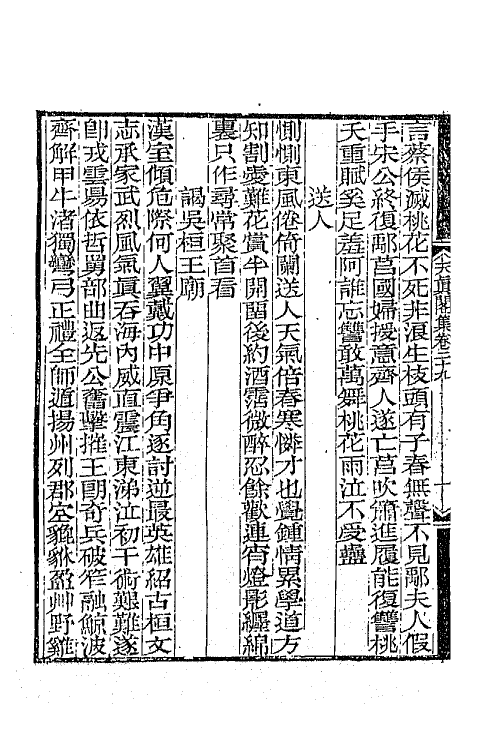 天真閣集卷二十九
言蔡侯滅桃花不死非浪生枝頭有子春無聲不見鄢夫人假
手宋公終復鄢莒國婦援意齊人遂亡莒吹簫進履能復讐桃
夭重賦奚足羞阿誰忘讐敢萬舞桃花雨泣不受蠱
送人
惻惻東風倦倚闌送人天氣倍春寒憐才也覺鍾情累學道方
知割愛難花賞半開留後約酒霑微醉忍餘歡連宵燈影纏綿
裏只作尋常聚首看
謁吳桓王廟
漢室傾危際何人翼戴功中原爭角逐討逆最英雄紹古桓文
志承家武烈風氣眞吞海內威直震江東涕泣初干術艱難遂
卽戎雲昜依哲舅部曲返先公奮擊摧王朗奇兵破笮融鯨波
齊解甲牛渚獨彎弓正禮全師遁揚州列郡空貔貅盈艸野雞